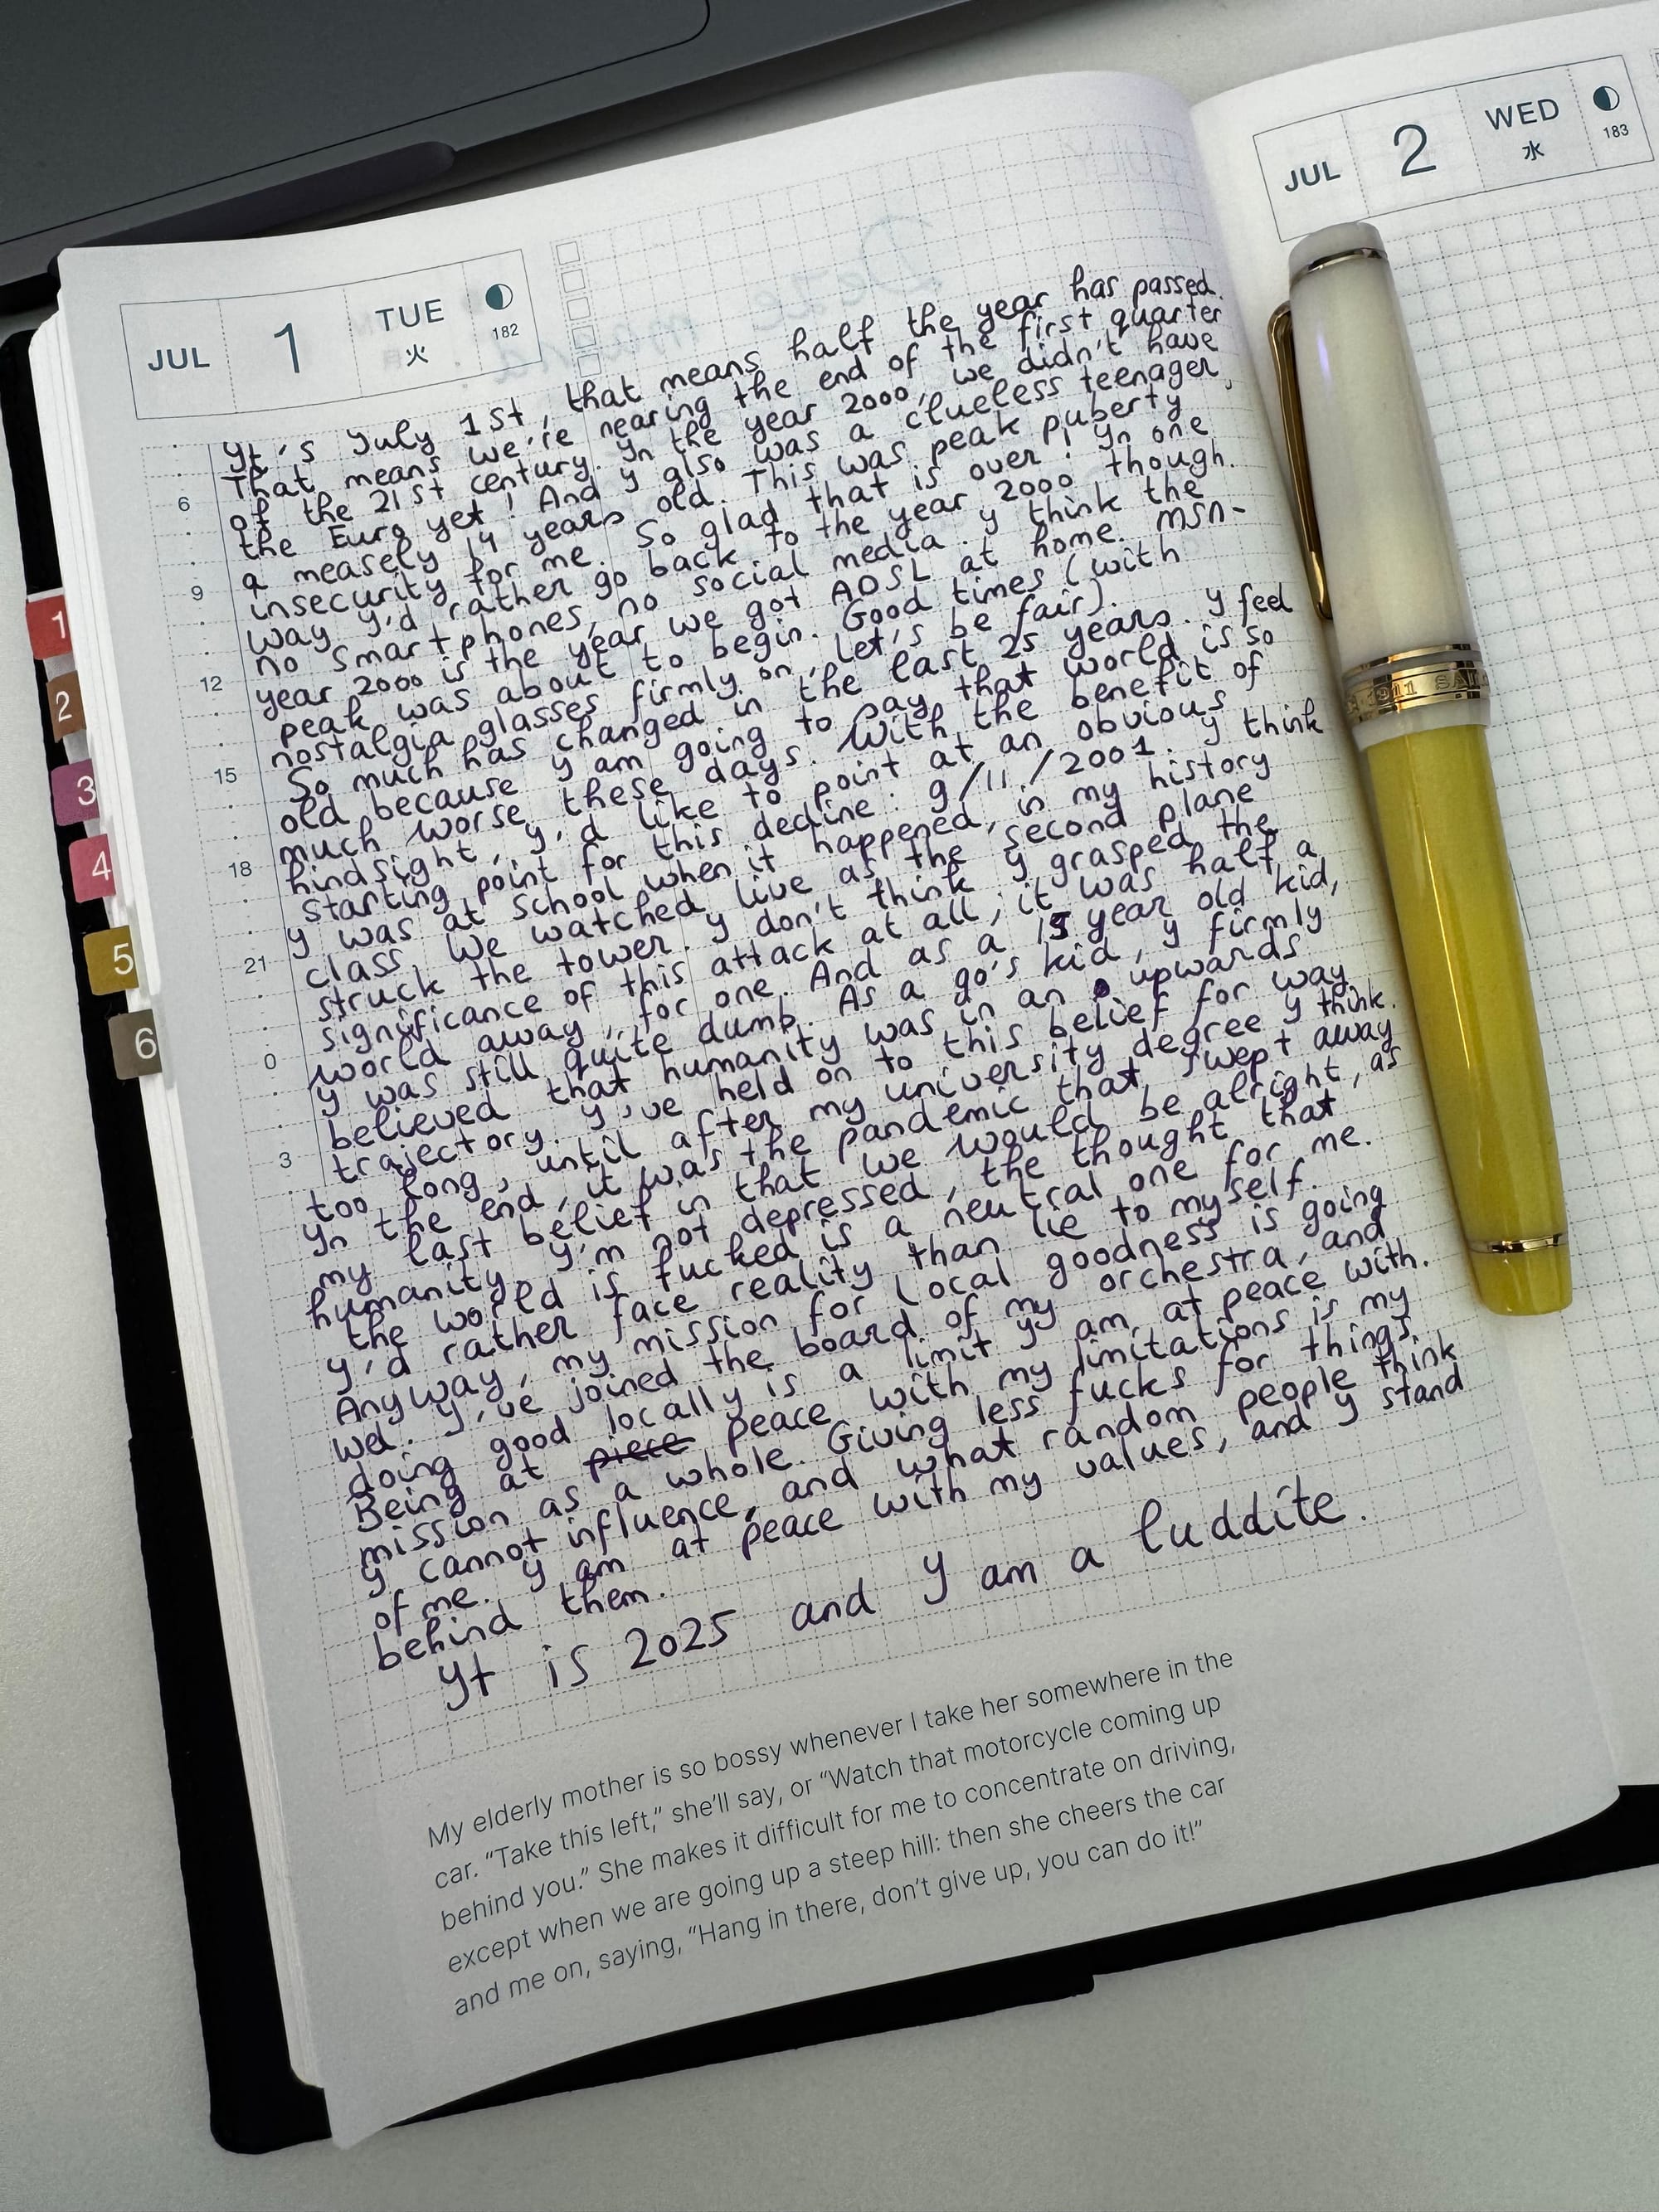 JUL 1 TUE 火 182
JUL 2 WED 水 183
It's July 1st, that means half the year has passed.
That means we're nearing the end of the first quarter
of the 21st century. In the year 2000, we didn't have
the Euro yet! And I also was a clueless teenager,
a measely 14 years old. This was peak puberty
insecurity for me. So glad that is over! In one
way I'd rather go back to the year 2000 though.
no smartphones, no social media. I think the
year 2000 is the year we got ADSL at home. MSN-
peak was about to begin. Good times (with
nostalgia glasses firmly on, let's be fair).
So much has changed in the last 25 years. I feel
old because I am going to say that world is so
much worse these days. With the benefit of
hindsight, I'd like to point at an obvious
starting point for this decline: 9/11/2001. I think
I was at school when it happened, in my history
class. We watched live as the second plane
struck the tower. I don't think I grasped the
significance of this attack at all, it was half a
world away, for one. And as a 15 year old kid,
I was still quite dumb. As a 90's kid, I firmly
believed that humanity was in an upwards
trajectory. I've held on to this belief for way
too long, until after my university degree I think.
In the end, it was the pandemic that swept away
my last belief in that we would be alright, as
humanity. I'm not depressed, the thought that
the world is fucked is a neutral one for me.
I'd rather face reality than lie to myself.
Anyway, my mission for local goodness is going
wel. I've joined the board of my orchestra, and
doing good locally is a limit I am at peace with.
Being at piece peace with my limitations is my
mission as a whole. Giving less fucks for things
I cannot influence, and what random people think
of me. I am at peace with my values, and I stand
behind them.
It is 2025 and I am a luddite.
My elderly mother is so bossy whenever I take her somewhere in the
car. “Take this left,” she’ll say, or “Watch that motorcycle coming up
behind you.” She makes it difficult for me to concentrate on driving,
except when we are going up a steep hill: then she cheers the car
and me on, saying, “Hang in there, don’t give up, you can do it!”
6
9
12
15
18
21
0
3
1
2
3
4
5
6
1911 SAI